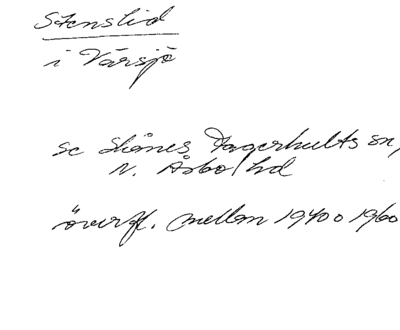 Stenslid
i Värsjö
se Skånes Fagerhults sn,
N. Åsbo hd
överfl. mellan 1940 o 1960